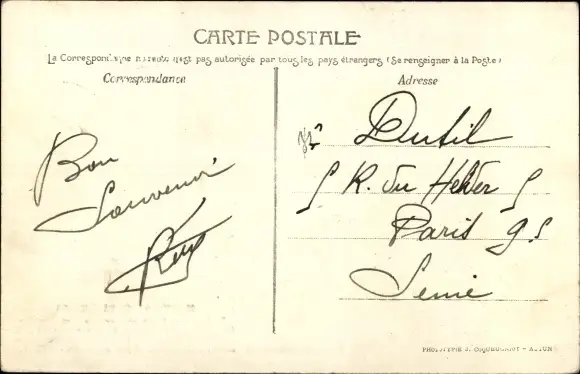 CARTE POSTALE
La Correspondance au recto n'est pas autorisée par tous les pays étrangers (Se renseigner à la Poste)
Correspondance
Adresse
Bon
Souvenir
Mr Dutil
5 R. du Helder 5
Paris 9e
Seine
PHOTOTYPIE J. COQUEUGNIOT - AUTUN